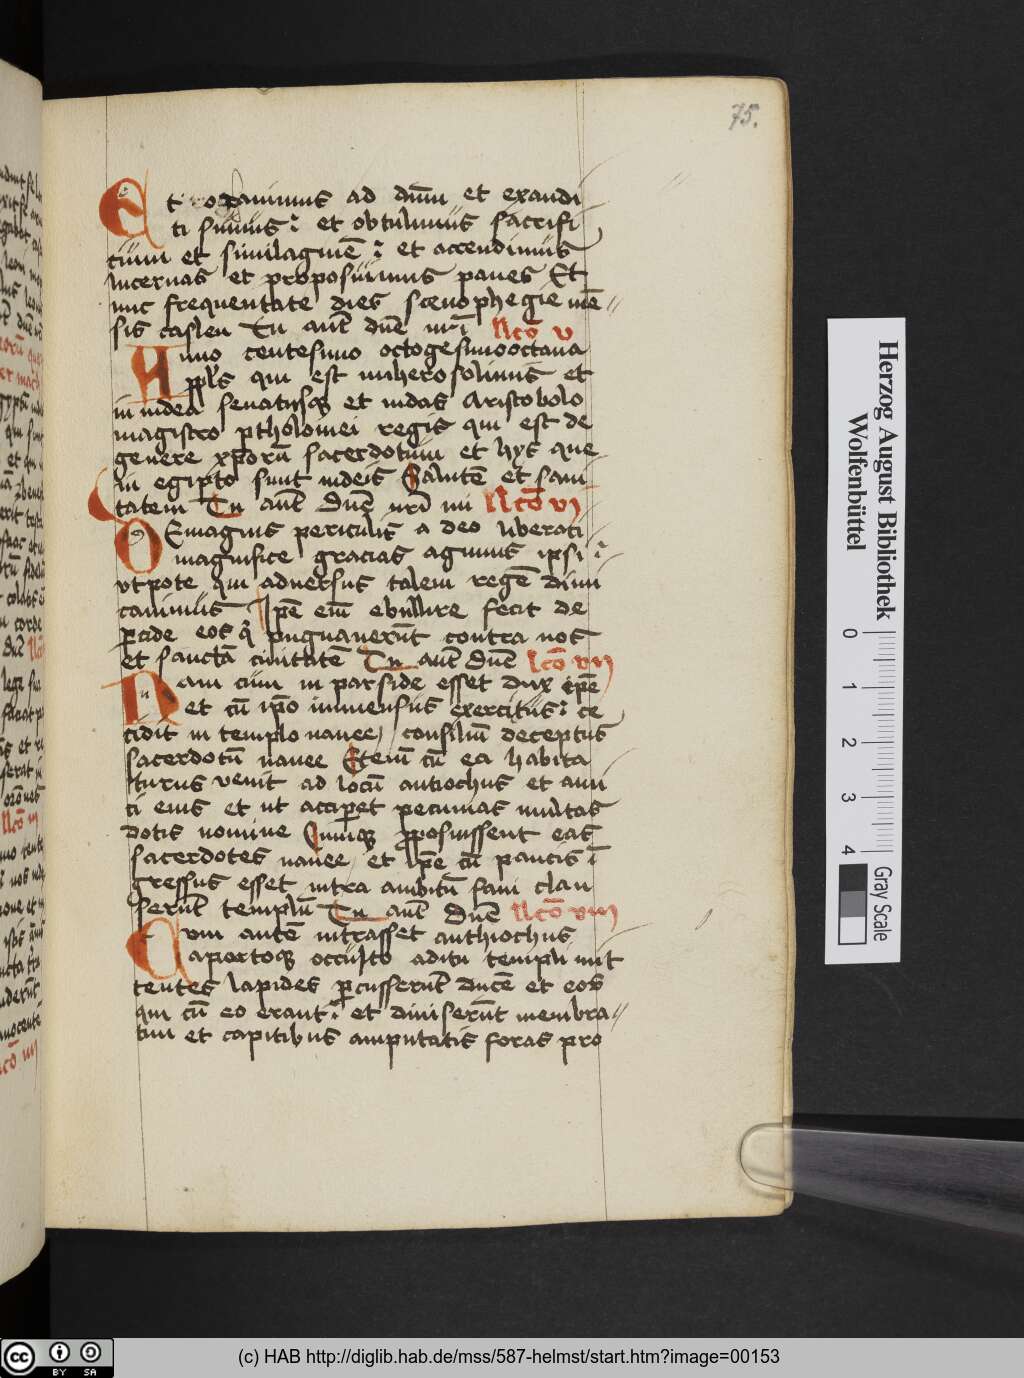 75.
Et rogauimus ad dn̄m et exaudi
ti sumus : et obtulimus sacrifi
cium et similaginē : et accendimus
lucernas et proposuimus panes Et
nnc frequentate dies scenophegie mē
sis casleu Tu aut̄ dn̄e nr̄i l̄c̄o v
Anno centesimo octogesimooctaua
ppl̄s qui est in iherosolimis et
in iudea senatusq̄ et iudas Aristobolo
magistro ptholomei regis qui est de
genere xp̄orū sacerdotum et hys que
in egipto sunt iudeis Salutē et sani
tatem Tu aut̄ Dn̄e nr̄i mi l̄c̄o vj
DE magnis periculis a deo liberati
magnifice gracias agimus ipsi :
vtpote qui aduersus talem regē dimi
cauimus Ip̄e eni ebullire fecit de
p̄cide eos q̄ pugnauerūt contra nos
et sanctā ciuitatē Tu aut̄ Dn̄e l̄c̄o vij
Nam cum in parside esset dux ip̄e
et cū ip̄o immensus exercitus : ce
cidit in templo nanee consiliū deceptus
sacerdotū nanee Etenī cū ea habita
turus venit ad locū antiochus et ami
ci eius et ut accip̄et pecunias multas
dotis nomine Cumq̄ p̄posuissent eas
sacerdotes nanee et ip̄e cū paucis ī
gressus esset intra ambitū fani clau
serūt templū Tu aut̄ Dn̄e l̄c̄o viij
Cum autē intrasset anthiochus
apertoq̄ occulto aditu templi mit
tentes lapides p̄cusserūt ducē et eos
qui cū eo erant : et diuiserūt membra
tim et capitibus amputatis foras pro
Herzog August Bibliothek
Wolfenbüttel
0 1 2 3 4
Gray Scale
cc BY SA
(c) HAB http://diglib.hab.de/mss/587-helmst/start.htm?image=00153